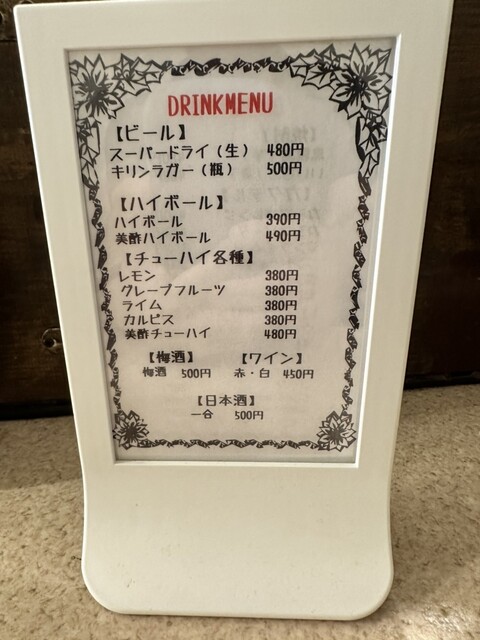 DRINKMENU
【ビール】
スーパードライ（生） 480円
キリンラガー（瓶） 500円
【ハイボール】
ハイボール 390円
美酢ハイボール 490円
【チューハイ各種】
レモン 380円
グレープフルーツ 380円
ライム 380円
カルピス 380円
美酢チューハイ 480円
【梅酒】 【ワイン】
梅酒 500円 赤・白 450円
【日本酒】
一合 500円